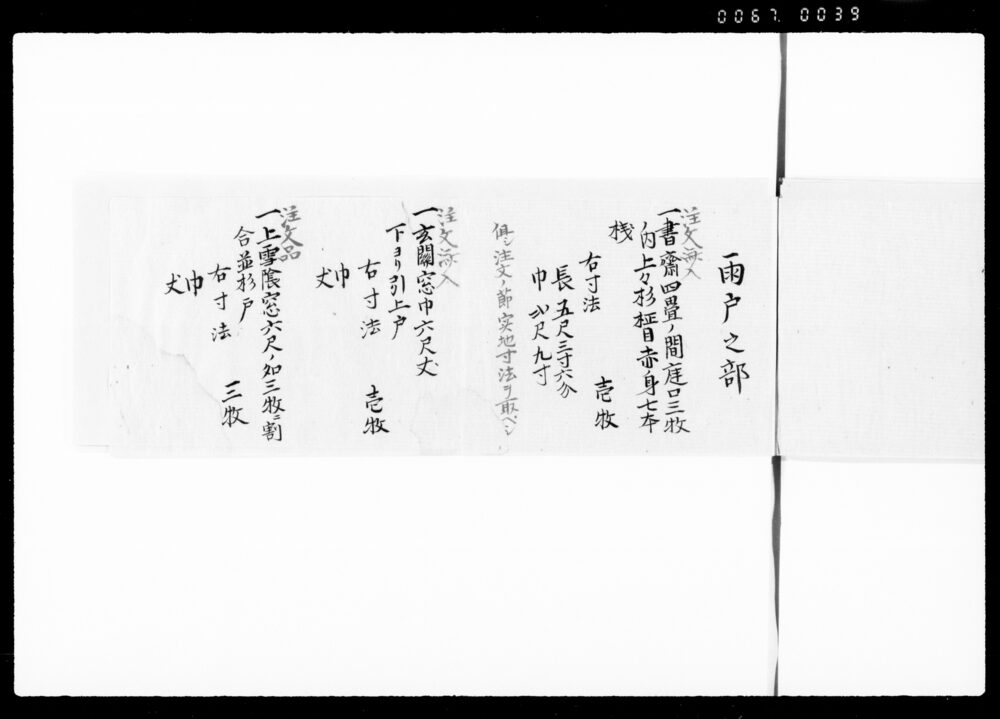 0067. 0039
雨戸之部
注文済入
一書齋四畳ノ間庭口三牧
ノ内上々杉柾目赤身七本
桟
右寸法 壱牧
長五尺三寸六分
巾弐尺九寸
但シ注文ノ節実地寸法ヲ取ベシ
注文済入
一玄關窓巾六尺丈
下ヨリ引上戸
右寸法 壱牧
巾
丈
注文品
一上雪隂窓六尺ノ如三牧ニ割
合並杉戸
右寸法 三牧
巾
丈